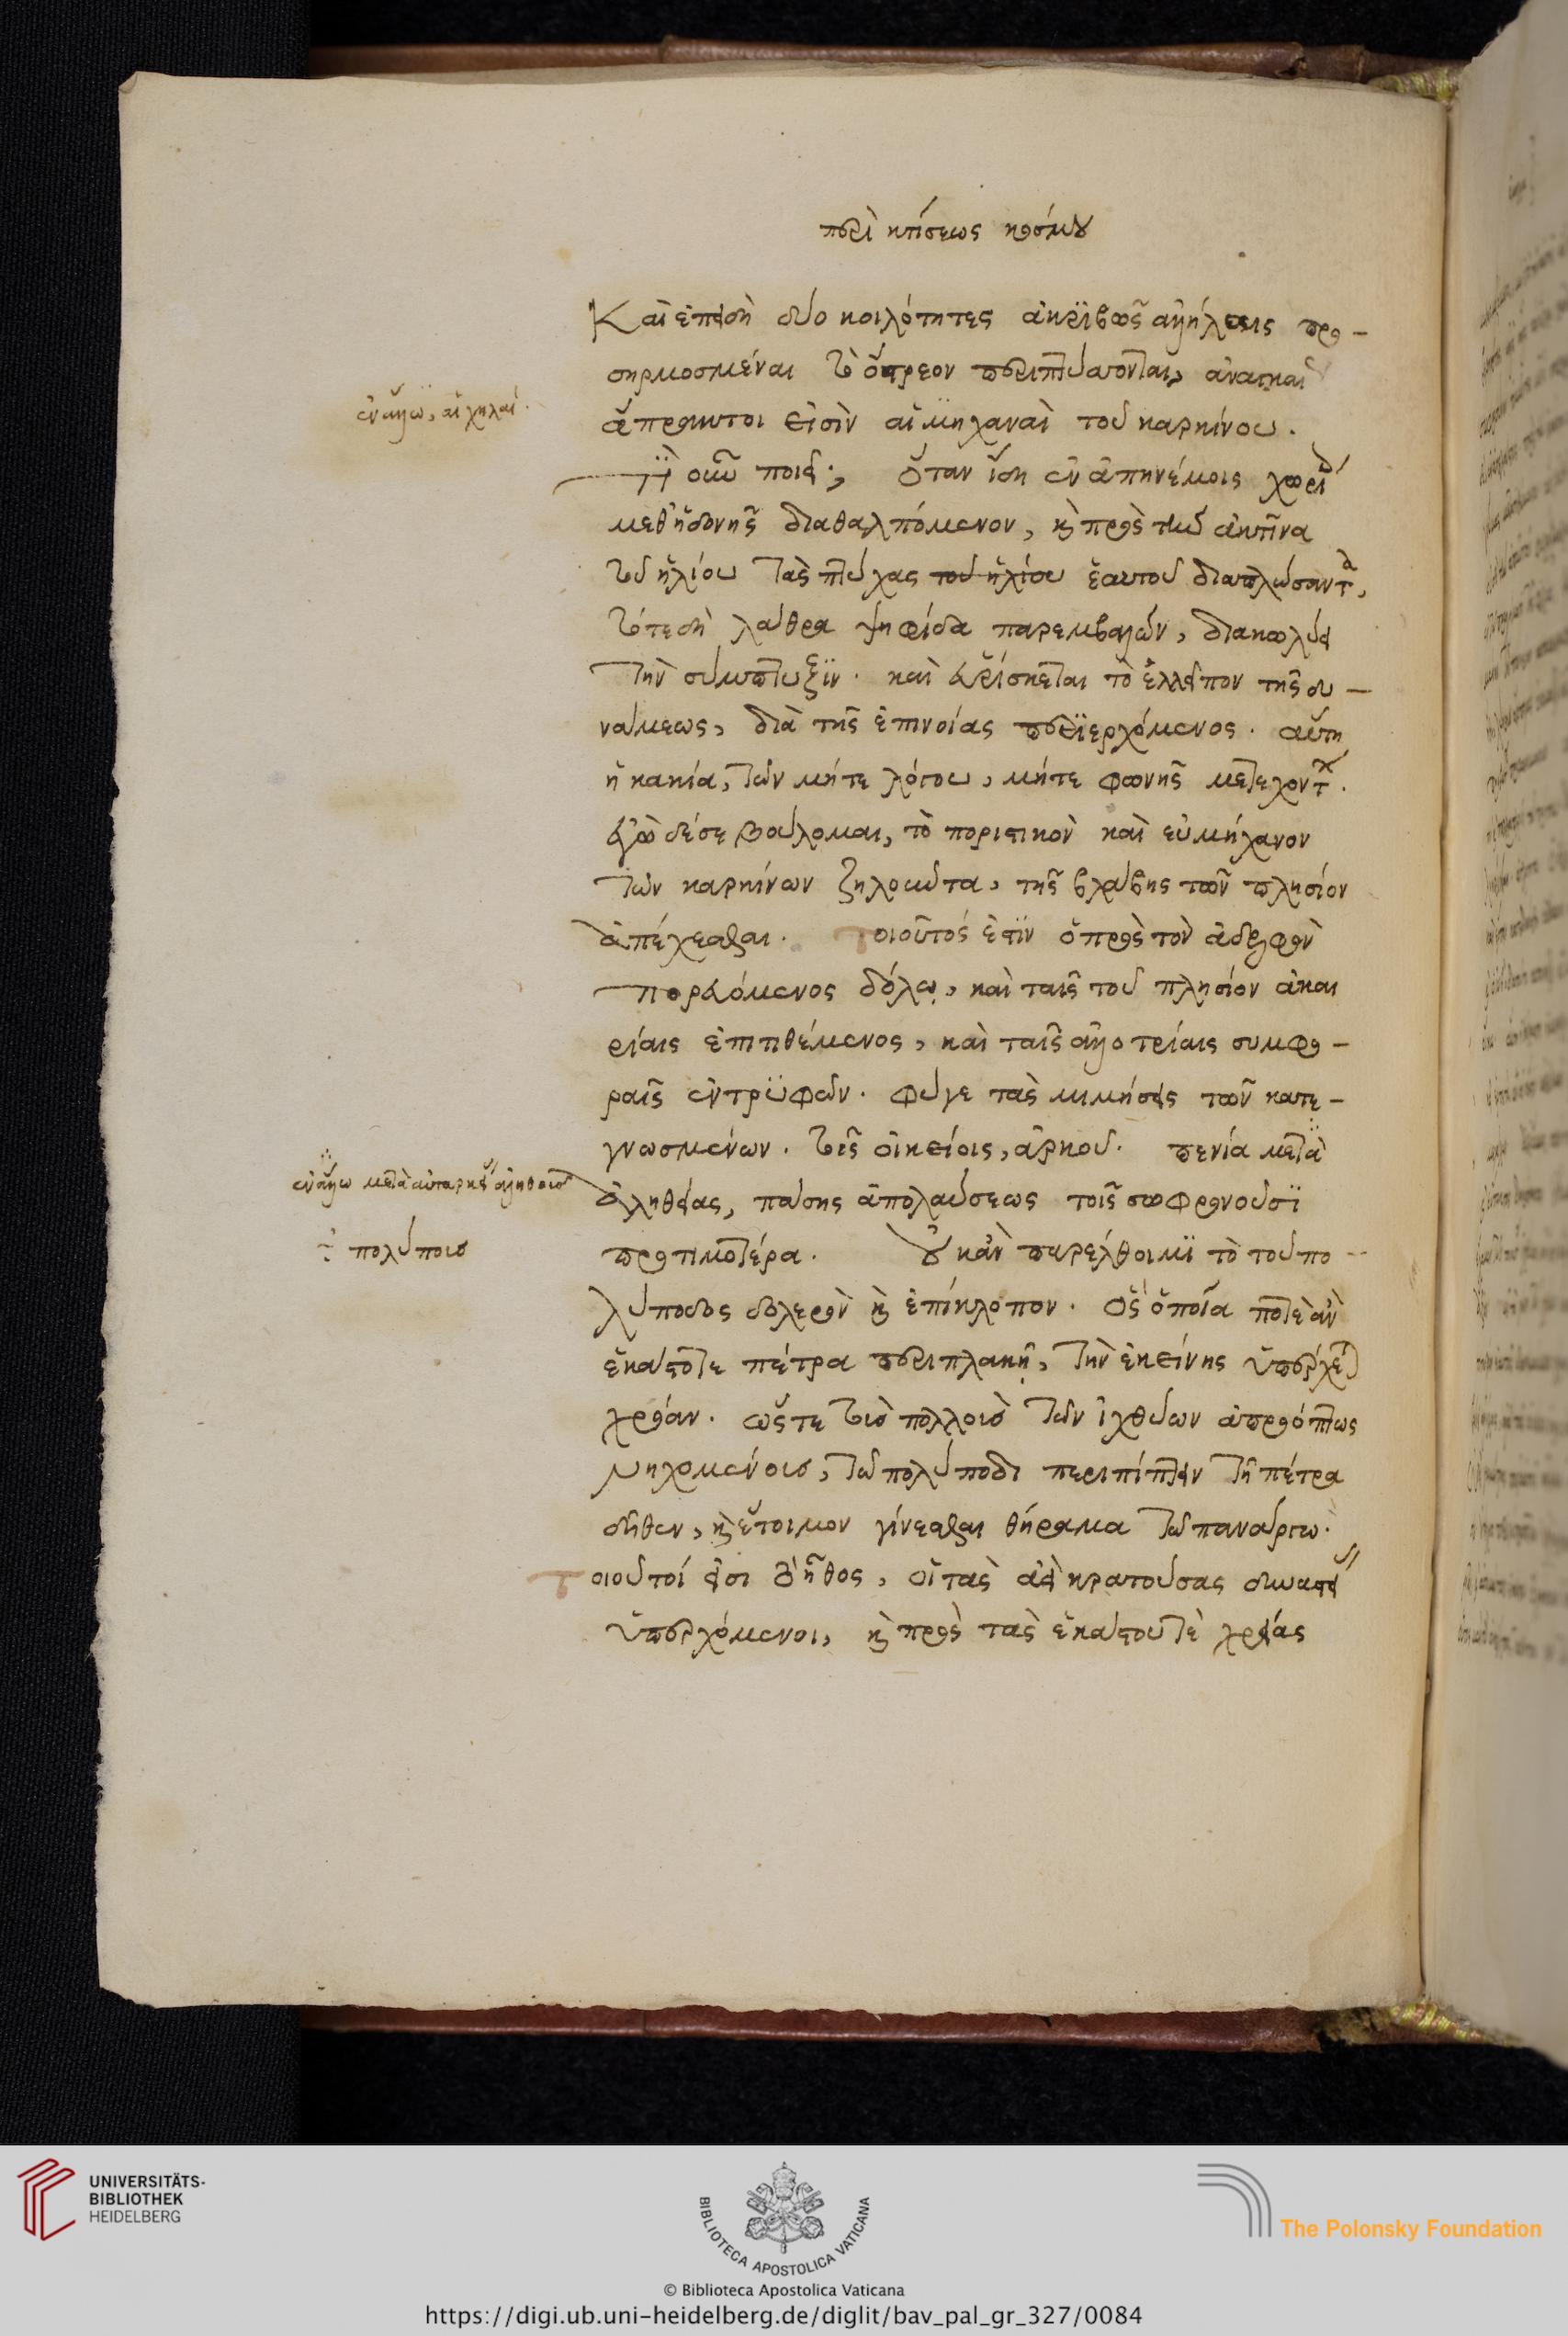 περὶ κτίσεως κόσμου
Καὶ ἐπειδὴ δύο κοιλότητες ἀκριβῶς ἀλλήλαις προ-
σηρμοσμέναι τὸ ὄστρεον περιπτύσσονται, ἀναγκαί
ἄπρακτοι εἰσὶν αἱ μηχαναὶ τοῦ καρκίνου.
ἐν ἄλλω, αἱ χηλαί.
Τί οὖν ποιεῖ; ὅταν ἴδη ἐν ἀπηνέμοις χωρίοις
μεθ' ἡδονῆς διαθαλπόμενον, καὶ πρὸς τὴν ἀκτῖνα
τοῦ ἡλίου τὰς πτύχας τοῦ ἡλίου ἑαυτοῦ διαπλώσαντα,
τότε δὴ λάθρα ψηφίδα παρεμβαλών, διακωλύει
τὴν σύμπτυξιν. καὶ εὑρίσκεται τὸ ἐλλεῖπον τῆς δυ-
νάμεως, διὰ τῆς ἐπινοίας περιερχόμενος. αὕτη
ἡ κακία, τῶν μήτε λόγου, μήτε φωνῆς μετεχόντων.
ἐγὼ δέ σε βούλομαι, τὸ ποριστικὸν καὶ εὐμήχανον
τῶν καρκίνων ζηλοῦντα, τῆς βλάβης τῶν πλησίον
ἀπέχεσθαι. τοιοῦτός ἐστιν ὁ πρὸς τὸν ἀδελφὸν
πορευόμενος δόλῳ, καὶ ταῖς τοῦ πλησίον ἀκαι
ρίαις ἐπιτιθέμενος, καὶ ταῖς ἀλλοτρίαις συμφο-
ραῖς ἐντρυφῶν. φεῦγε τὰς μιμήσεις τῶν κατε-
γνωσμένων. τοῖς οἰκείοις, ἀρκοῦ. πενία μετὰ
ἐν ἄλλω μετὰ αὐταρκείας ἀληθοῦς
ἀληθείας, πάσης ἀπολαύσεως τοῖς σωφρονοῦσι
προτιμοτέρα. Οὐκ ἂν παρέλθοιμι τὸ τοῦ πο-
πολύποισ
λύποδος δολερὸν καὶ ἐπίκλοπον. Ὃς ὁποία ποτὲ ἂν
ἑκάστοτε πέτρα περιπλακῇ, τὴν ἐκείνης ὑπέρχεται
χρόαν. ὥστε τοὺσ πολλοὺσ τῶν ἰχθύων ἀπροόπτως
νηχομένουσ, τῶ πολύποδι περιπίπτειν τῆ πέτρα
δῆθεν, καὶ ἕτοιμον γίνεσθαι θήραμα τῶ πανούργω.
τοιοῦτοί εἰσι τὸ ἦθος, οἱ τὰς ἀεὶ κρατούσας δυναστείας
ὑπερχόμενοι, καὶ πρὸς τὰς ἑκάστοτε χρείας
UNIVERSITÄTS-
BIBLIOTHEK
HEIDELBERG
BIBLIOTECA APOSTOLICA VATICANA
© Biblioteca Apostolica Vaticana
The Polonsky Foundation
https://digi.ub.uni-heidelberg.de/diglit/bav_pal_gr_327/0084